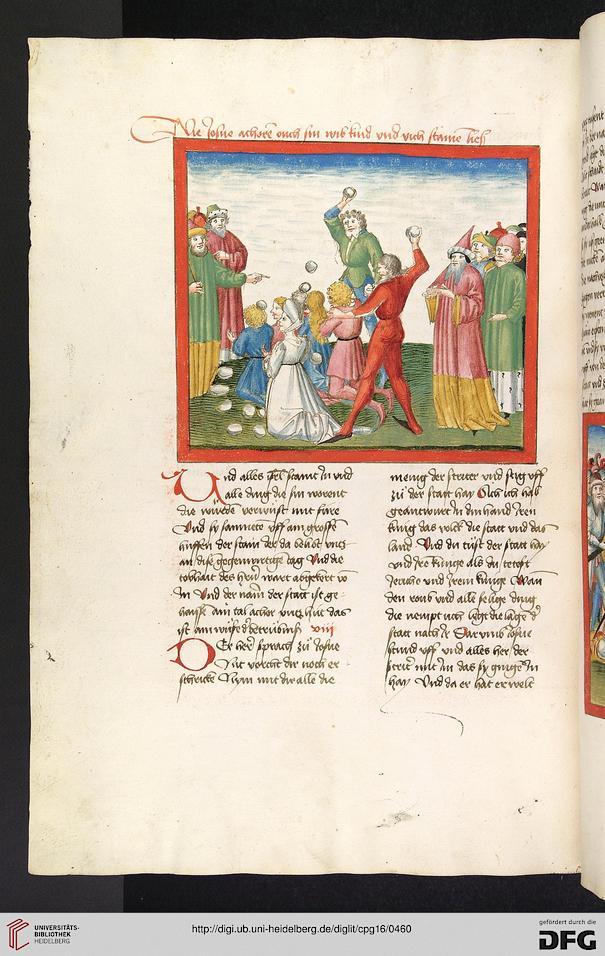 Wie Josue achorn ouch sin wib kind und vich stainen ließ
Und alles Isrl staint in und
alle ding die sin warent
die wurden verwüst mit füre
Und sy samneten uff ain grossen
huffen der stain der da belibt untz
an disen gegenwirtigen tag Und die
tobhait des hern wart abgekert von
in Und der nam der statt ist ge-
haissen ain tal achor untz hüt das
ist ain wirß der betrübniß viii
Der herr sprach zu Josue
Nit vorcht dir noch er-
schricke Nym mit dir alle die
menig der striter und stig uff
zu der statt hay Sich ich hab
geantwurt in din hand iren
küng das volck die statt und das
land Und du tust der statt hay
und ire künge als du tettest
Jericho und irem künge Wan
den roub und alle selige ding
die nempt üch legt die läge der
statt nach ir Darumb Josue
stund uff und alles her der
striter mit im das sy gingen in
hay Und da er hat erwelt
UNIVERSITÄTS-
BIBLIOTHEK
HEIDELBERG
http://digi.ub.uni-heidelberg.de/diglit/cpg16/0460
gefördert durch die
DFG